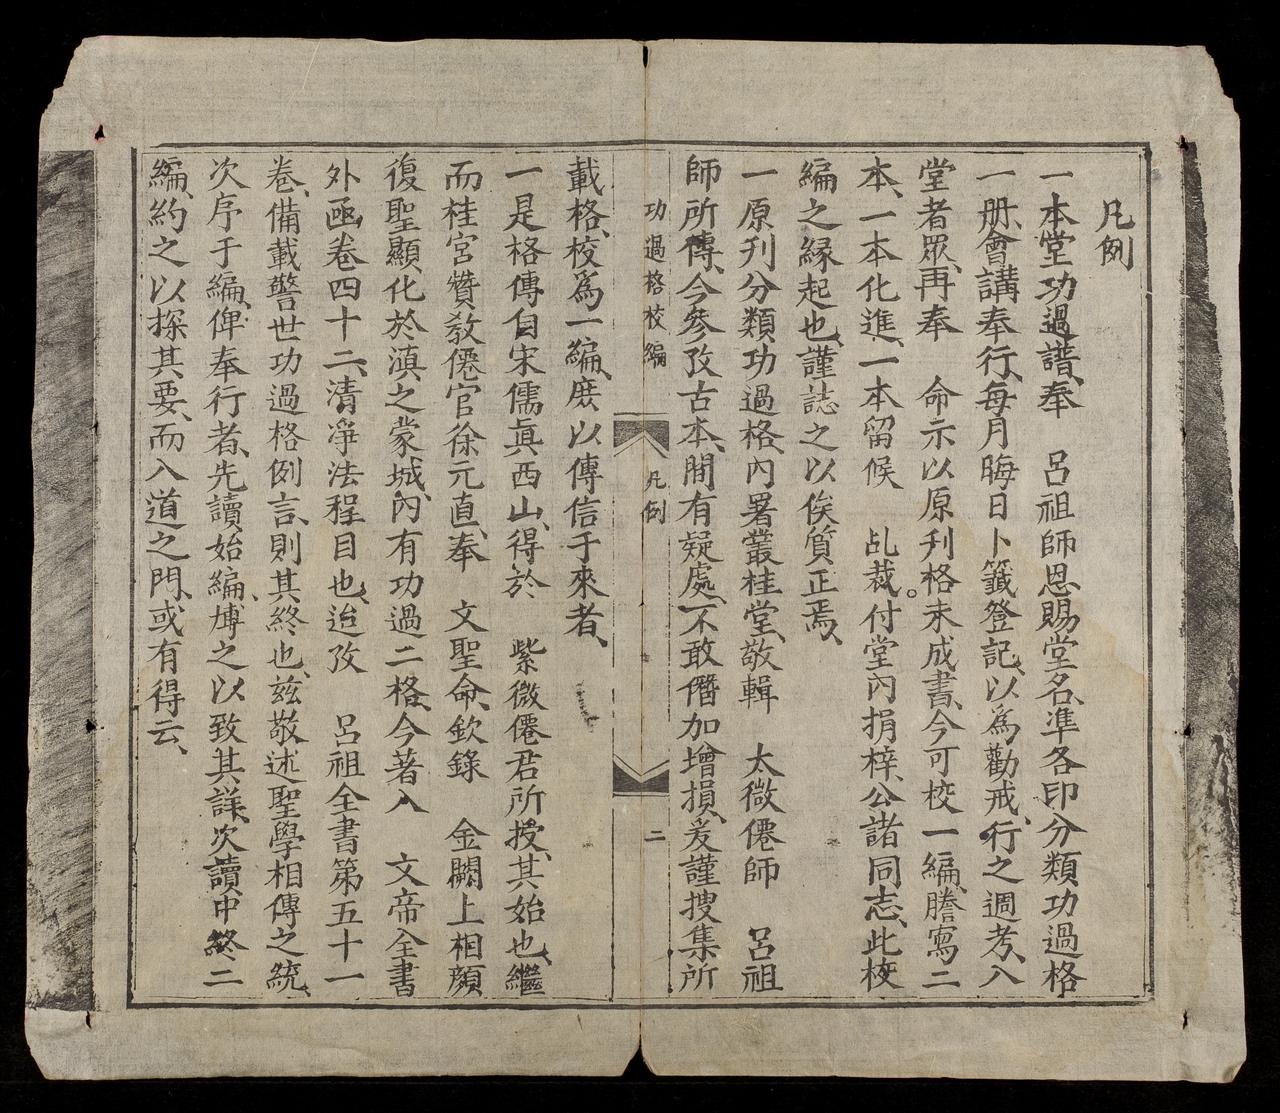 凡例
一本堂功過譜、奉　呂祖師恩賜堂名、準各印分類功過格
一册、會講奉行、每月晦日卜籤登記、以爲勸戒、行之週考、入
堂者眾、再奉　命示以原刋格未成書、今可校一編、謄寫二
本、一本化進、一本留候　乩裁。付堂內捐梓、公諸同志、此校
編之緣起也、謹誌之以俟質正焉、
一原刋分類功過格、內署叢桂堂、敬輯　太微僊師　呂祖
師所傳、今參攷古本、間有疑處、不敢僭加增損、爰謹搜集所
功過格校編
凡例
二
載格、校爲一編、庶以傳信于來者、
一是格傳自宋儒眞西山、得於　紫微僊君所授、其始也、繼
而桂宮贊敎僊官徐元直、奉　文聖命、欽錄　金闕上相顏
復聖顯化於滇之蒙城、內有功過二格、今著入　文帝全書
外函卷四十二、清凈法程目也、迨攷　呂祖全書第五十一
卷、備載警世功過格例言、則其終也、兹敬述聖學相傳之統、
次序于編、俾奉行者、先讀始編、博之以致其詳、次讀中終二
編、約之以探其要、而入道之門、或有得云、